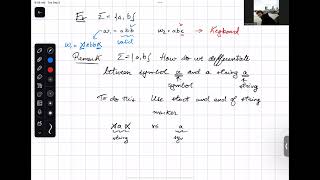 Ex Σ = {a,b}
w₁ = abb w₂ = abc → Keyboard
valid
Remark Σ = {a,b} How do we differentiate
between symbol a and a string a
symbol string
To do this Use start and end of string
marker
a vs a
string sym